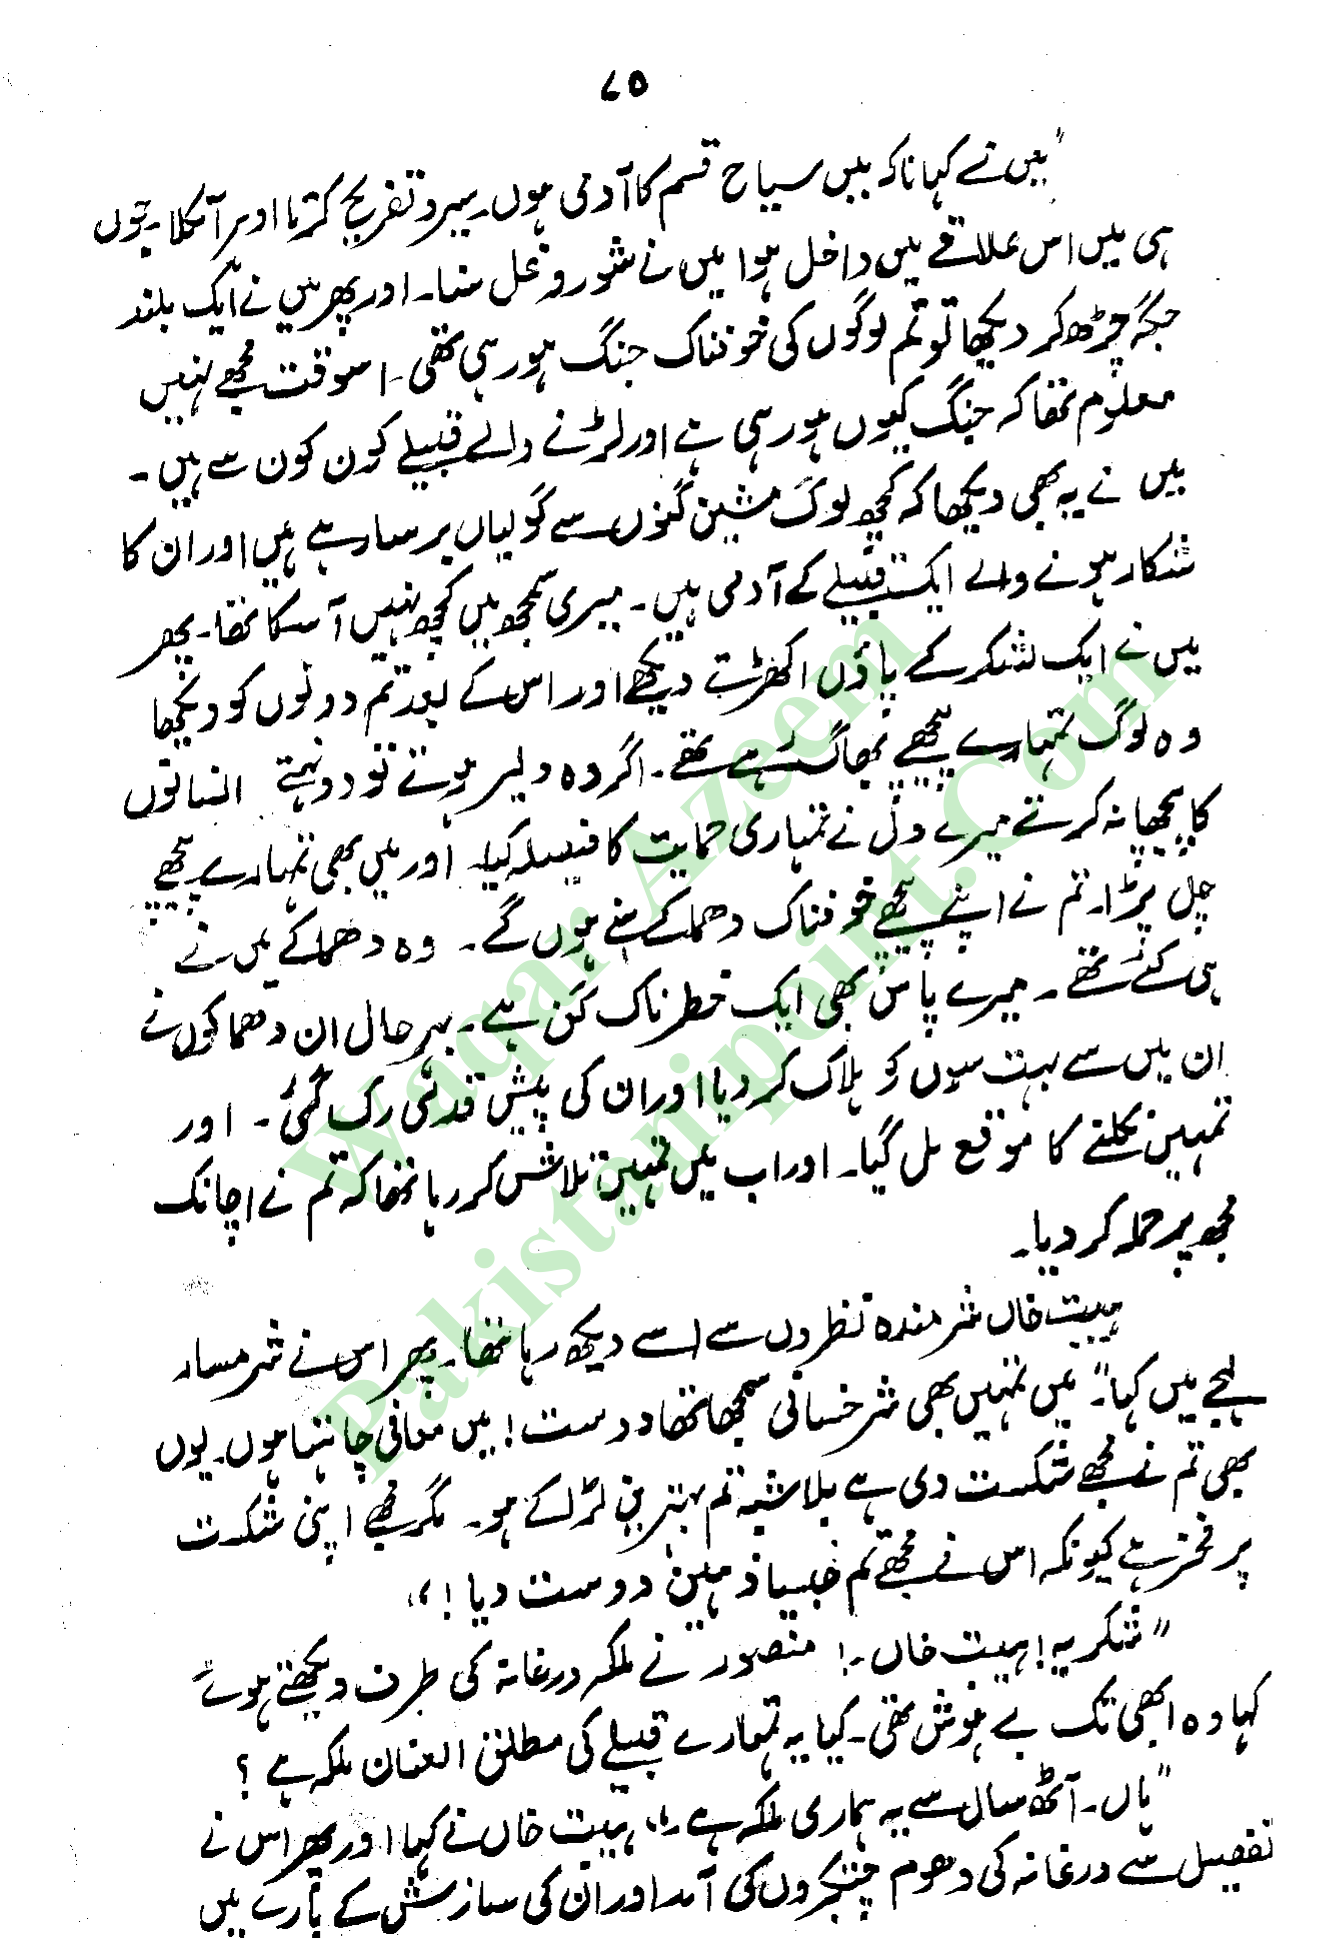 ۷۵
"میں نے کہا نا کہ میں سیاح قسم کا آدمی ہوں۔ سیر و تفریح کرتا ادہر آ نکلا۔ جوں
ہی میں اس علاقے میں داخل ہوا میں نے شور و غل سنا۔ اور پھر میں نے ایک بلند
جگہ چڑھ کر دیکھا تو تم لوگوں کی خوفناک جنگ ہو رہی تھی۔ اسوقت مجھے نہیں
معلوم تھا کہ جنگ کیوں ہو رہی ہے اور لڑنے والے قبیلے کون کون سے ہیں۔
میں نے یہ بھی دیکھا کہ کچھ لوگ مشین گنوں سے گولیاں برسا رہے ہیں اور ان کا
شکار ہونے والے ایک قبیلے کے آدمی ہیں۔ میری سمجھ میں کچھ نہیں آ سکا تھا۔ پھر
میں نے ایک لشکر کے پاؤں اکھڑتے دیکھے اور اس کے بعد تم دونوں کو دیکھا
وہ لوگ تمہارے پیچھے بھاگ رہے تھے۔ اگر وہ دلیر ہوتے تو دو نہتے انسانوں
کا پیچھا نہ کرتے میرے دل نے تمہاری حمایت کا فیصلہ کیا۔ اور میں بھی تمہارے پیچھے
چل پڑا۔ تم نے اپنے پیچھے خوفناک دھماکے سنے ہوں گے۔ وہ دھماکے میں نے
ہی کئے تھے۔ میرے پاس بھی ایک خطرناک گن ہے۔ بہرحال ان دھماکوں نے
ان میں سے بہت سوں کو ہلاک کر دیا اور ان کی پیش قدمی رک گئی۔ اور
تمہیں نکلنے کا موقع مل گیا۔ اور اب میں تمہیں تلاش کر رہا تھا کہ تم نے اچانک
مجھ پر حملہ کر دیا۔
ہیبت خاں شرمندہ نظروں سے اسے دیکھ رہا تھا۔ پھر اس نے شرمسار
لہجے میں کہا۔" میں تمہیں بھی شرخسانی سمجھا تھا دوست! میں معافی چاہتا ہوں۔ یوں
بھی تم نے مجھے شکست دی ہے بلا شبہ تم بہترین لڑاکے ہو۔ مگر مجھے اپنی شکست
پر فخر ہے کیونکہ اس نے مجھے تم جیسا ذہین دوست دیا!"
"شکریہ! ہیبت خاں۔! منصور نے ملکہ درغانہ کی طرف دیکھتے ہوئے
کہا وہ ابھی تک بے ہوش تھی۔ کیا یہ تمہارے قبیلے کی مطلق العنان ملکہ ہے ؟
"ہاں۔ آٹھ سال سے یہ ہماری ملکہ ہے۔" ہیبت خاں نے کہا اور پھر اس نے
تفصیل سے درغانہ کی دھوم چنگروں کی آمد اور ان کی سازش کے بارے میں
Waqar Azeem
Pakistanipoint.Com